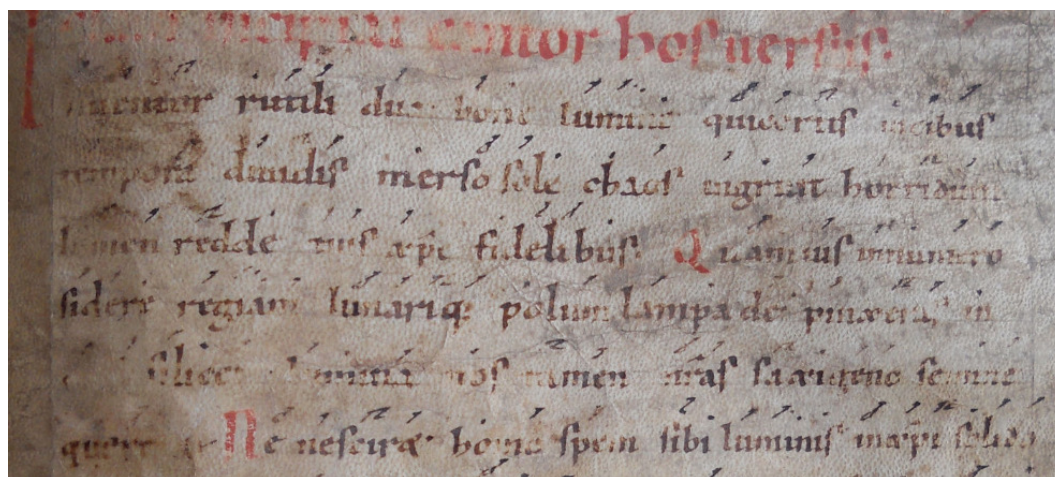 incipiat cantor hos uersus.
Inuentor rutili dux bone luminis qui certis uicibus
tempora diuidis merso sole chaos ingruit horridum
lumen redde tuis xpe fidelibus. Quamuis innumero
sidere regiam lunariq; polum lampade pinxeris, in
silicis nos tamen saxigeno semine
querere Ne nesciret homo spem sibi luminis in xpi solido